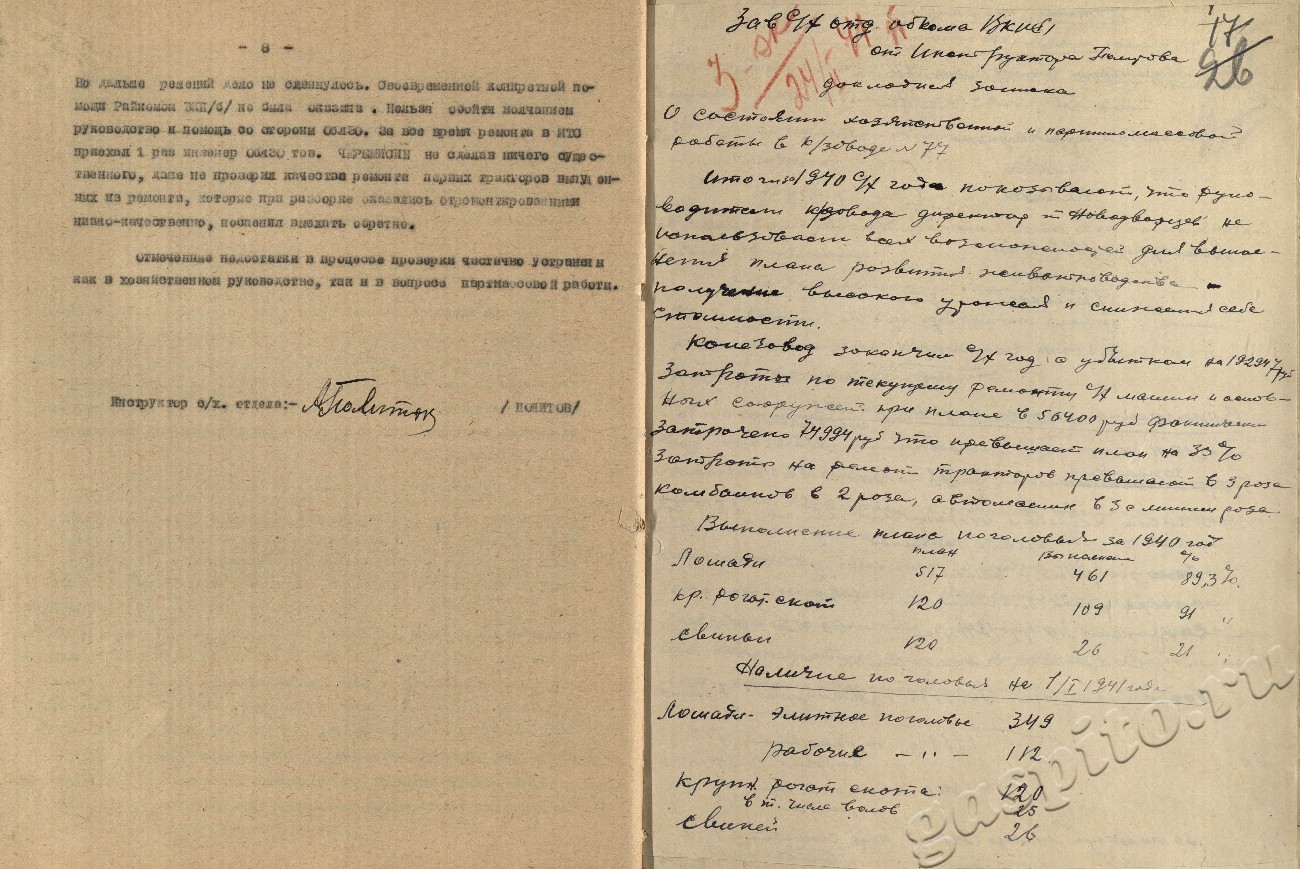 - 8 -
Но дальше решений дело не сдвинулось. Своевременной конкретной по-
мощи Райкомом ВКП/б/ не была оказана. Нельзя обойти молчанием
руководство и помощь со стороны ОблЗО. За все время ремонта в МТС
приехал 1 раз инженер ОблЗО тов. ЧЕРЕМИСИН не сделав ничего сущес-
твенного, даже не проверил качества ремонта первых тракторов выпущен-
ных из ремонта, которые при разборке оказались отремонтированными
низко-качественно, поспешил выехать обратно.
Отмеченные недостатки в процессе проверки частично устранены
как в хозяйственном руководстве, так и в вопросе партмассовой работы.
Инструктор с/х. отдела:- АПолитов / ПОЛИТОВ/
17
26
Зав с/х отд. обкома ВКП(б)
от Инструктора Политова
докладная записка
О состоянии хозяйственной и партийномассовой
работы в к/заводе № 77
Итоги за 1940 с/х год показывают, что руко-
водители к/завода директор т Новодворцев не
использовали всех возможностей для выпол-
нения плана развития животноводства -
получение высокого урожая и снижения себе
стоимости.
Конезавод закончил с/х год с убытком на 192947 руб
Затраты по текущему ремонту с/х машин и основ-
ных сооружен при плане в 56400 руб фактически
затрачено 74994 руб что превышает план на 33%
Затраты на ремонт тракторов превышают в 3 раза
комбайнов в 2 раза, автомашин в 3 с лишним раза.
Выполнение плана поголовья за 1940 год
план выполнен %
Лошади 517 461 89,3%.
кр. рогат. скот 120 109 91 "
свиньи 120 26 21 "
Наличие поголовья на 1/I 1941 года
Лошади - элитное поголовье 349
рабочие - " - 112
крупн. рогат скота: 120
в т. числе волов 25
свиней 26
gaspito.ru